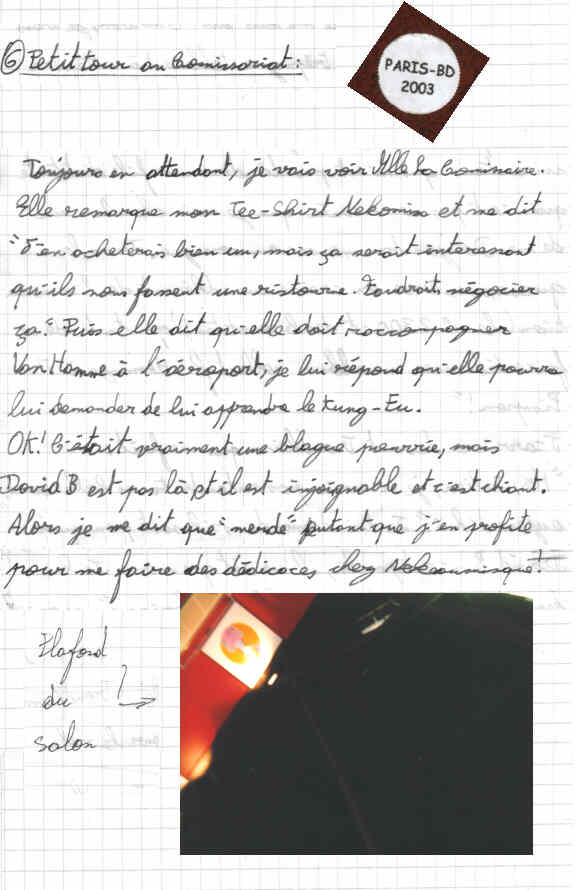 ⑥ Petit tour au Comissariat :
PARIS-BD
2003
Toujours en attendant, je vais voir Mlle La Cominaire.
Elle remarque mon Tee-Shirt Nekomix et me dit
"J'en acheterais bien un, mais ça serait interessant
qu'ils nous fassent une ristourne. Faudrait négocier
ça." Puis elle dit qu'elle doit raccompagner
Van Hamme à l'aéroport, je lui répond qu'elle pourra
lui demander de lui apprendre le Kung-Fu.
OK! C'était vraiment une blague pourrie, mais
David B est pas là et il est injoignable et c'est chiant.
Alors je me dit que "merde" autant que j'en profite
pour me faire des dédicaces chez
Plafond
du
salon